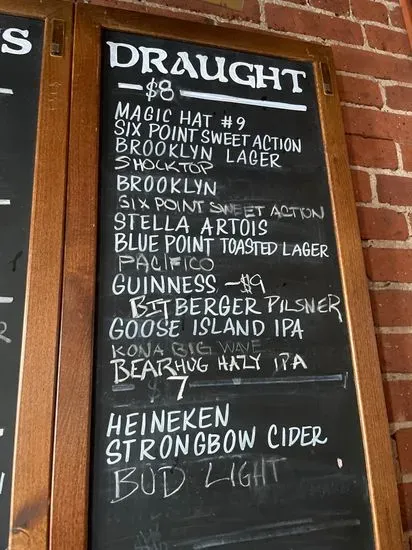 S
DRAUGHT
- $8 -
MAGIC HAT #9
SIX POINT SWEET ACTION
BROOKLYN LAGER
SHOCKTOP
BROOKLYN
SIX POINT SWEET ACTION
STELLA ARTOIS
BLUE POINT TOASTED LAGER
PACIFICO
GUINNESS -$9
BIT BERGER PILSNER
GOOSE ISLAND IPA
KONA BIG WAVE
BEARHUG HAZY IPA
7
HEINEKEN
STRONGBOW CIDER
BUD LIGHT